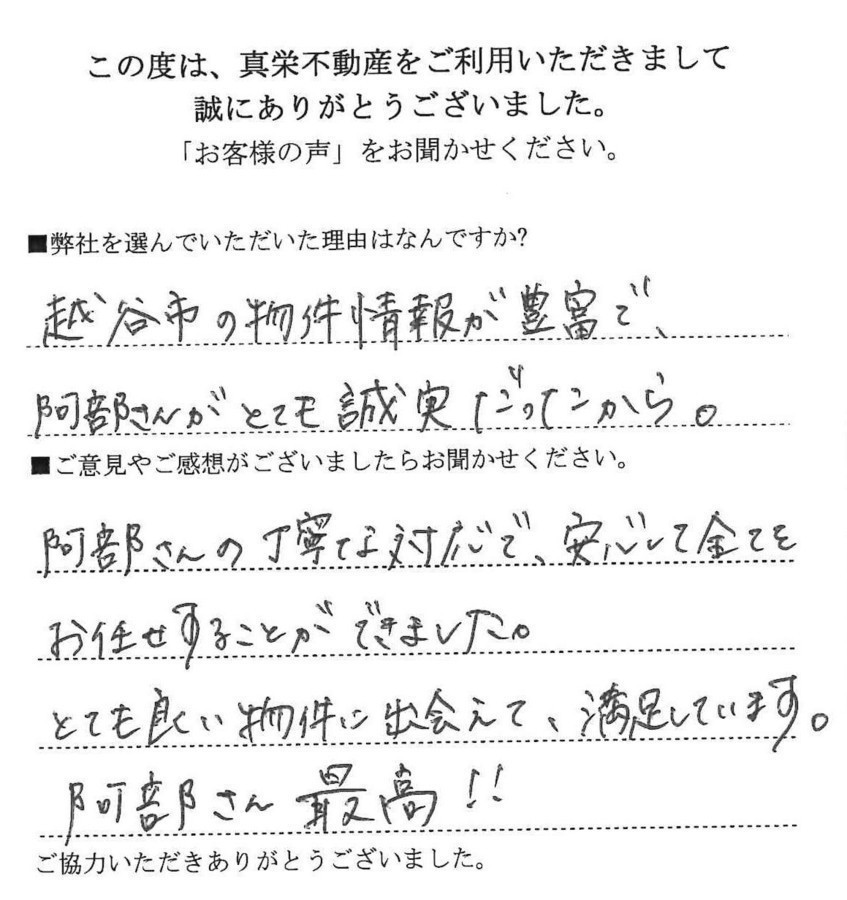 この度は、真栄不動産をご利用いただきまして
誠にありがとうございました。
「お客様の声」をお聞かせください。
■弊社を選んでいただいた理由はなんですか?
越谷市の物件情報が豊富で、
阿部さんがとても誠実だったから。
■ご意見やご感想がございましたらお聞かせください。
阿部さんの丁寧な対応で、安心して全てを
お任せすることができました。
とても良い物件に出会えて、満足しています。
阿部さん最高!!
ご協力いただきありがとうございました。